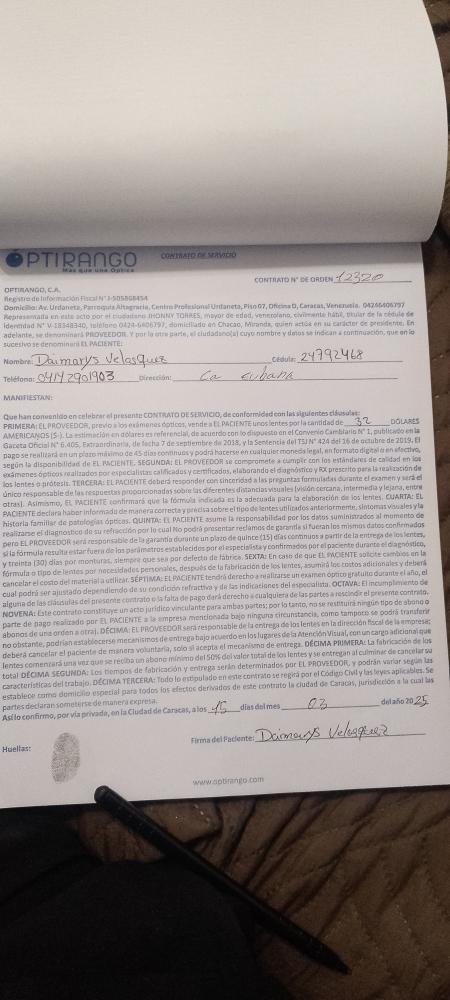 ÓPTIRANGO
Más que una Óptica
CONTRATO DE SERVICIO
CONTRATO N° DE ORDEN 12320
OPTIRANGO, C.A.
Registro de Información Fiscal N° J-505868454
Domicilio: Av. Urdaneta, Parroquia Altagracia, Centro Profesional Urdaneta, Piso 07, Oficina D, Caracas, Venezuela. 04246406797
Representada en este acto por el ciudadano JHONNY TORRES, mayor de edad, venezolano, civilmente hábil, titular de la cédula de
identidad N° V-18348340, teléfono 0424-6406797, domiciliado en Chacao, Miranda, quien actúa en su carácter de presidente. En
adelante, se denominará PROVEEDOR. Y por la otra parte, el ciudadano(a) cuyo nombre y datos se indican a continuación, que en lo
sucesivo se denominará EL PACIENTE:
Nombre: Daimarys Velasquez Cédula: 24792468
Teléfono: 04142901903 Dirección: La urbana
MANIFIESTAN:
Que han convenido en celebrar el presente CONTRATO DE SERVICIO, de conformidad con las siguientes cláusulas:
PRIMERA: EL PROVEEDOR, previo a los exámenes ópticos, vende a EL PACIENTE unos lentes por la cantidad de 32 DÓLARES
AMERICANOS ($-). La estimación en dólares es referencial, de acuerdo con lo dispuesto en el Convenio Cambiario N° 1, publicado en la
Gaceta Oficial N° 6.405, Extraordinaria, de fecha 7 de septiembre de 2018, y la Sentencia del TSJ N° 424 del 16 de octubre de 2019. El
pago se realizará en un plazo máximo de 45 días continuos y podrá hacerse en cualquier moneda legal, en formato digital o en efectivo,
según la disponibilidad de EL PACIENTE. SEGUNDA: EL PROVEEDOR se compromete a cumplir con los estándares de calidad en los
exámenes ópticos realizados por especialistas calificados y certificados, elaborando el diagnóstico y RX prescrito para la realización de
los lentes o prótesis. TERCERA: EL PACIENTE deberá responder con sinceridad a las preguntas formuladas durante el examen y será el
único responsable de las respuestas proporcionadas sobre las diferentes distancias visuales (visión cercana, intermedia y lejana, entre
otras). Asimismo, EL PACIENTE confirmará que la fórmula indicada es la adecuada para la elaboración de los lentes. CUARTA: EL
PACIENTE declara haber informado de manera correcta y precisa sobre el tipo de lentes utilizados anteriormente, síntomas visuales y la
historia familiar de patologías ópticas. QUINTA: EL PACIENTE asume la responsabilidad por los datos suministrados al momento de
realizarse el diagnostico de su refracción por lo cual No podrá presentar reclamos de garantía si fueran los mismos datos confirmados
pero EL PROVEEDOR será responsable de la garantía durante un plazo de quince (15) días continuos a partir de la entrega de los lentes,
si la fórmula resulta estar fuera de los parámetros establecidos por el especialista y confirmados por el paciente durante el diagnóstico,
y treinta (30) días por monturas, siempre que sea por defecto de fábrica. SEXTA: En caso de que EL PACIENTE solicite cambios en la
fórmula o tipo de lentes por necesidades personales, después de la fabricación de los lentes, asumirá los costos adicionales y deberá
cancelar el costo del material a utilizar. SÉPTIMA: EL PACIENTE tendrá derecho a realizarse un examen óptico gratuito durante el año, el
cual podrá ser ajustado dependiendo de su condición refractiva y de las indicaciones del especialista. OCTAVA: El incumplimiento de
alguna de las cláusulas del presente contrato o la falta de pago dará derecho a cualquiera de las partes a rescindir el presente contrato.
NOVENA: Este contrato constituye un acto jurídico vinculante para ambas partes; por lo tanto, no se restituirá ningún tipo de abono o
parte de pago realizado por EL PACIENTE a la empresa mencionada bajo ninguna circunstancia, como tampoco se podrá transferir
abonos de una orden a otra). DÉCIMA: EL PROVEEDOR será responsable de la entrega de los lentes en la dirección fiscal de la empresa;
no obstante, podrían establecerse mecanismos de entrega bajo acuerdo en los lugares de la Atención Visual, con un cargo adicional que
deberá cancelar el paciente de manera voluntaria, solo si acepta el mecanismo de entrega. DÉCIMA PRIMERA: La fabricación de los
lentes comenzará una vez que se reciba un abono mínimo del 50% del valor total de los lentes y se entregan al culminar de cancelar su
total DÉCIMA SEGUNDA: Los tiempos de fabricación y entrega serán determinados por EL PROVEEDOR, y podrán variar según las
características del trabajo. DÉCIMA TERCERA: Todo lo estipulado en este contrato se regirá por el Código Civil y las leyes aplicables. Se
establece como domicilio especial para todos los efectos derivados de este contrato la ciudad de Caracas, jurisdicción a la cual las
partes declaran someterse de manera expresa.
Así lo confirmo, por vía privada, en la Ciudad de Caracas, a los 15 días del mes 03 del año 2025
Huellas:
Firma del Paciente: Daimarys Velasquez
www.optirango.com